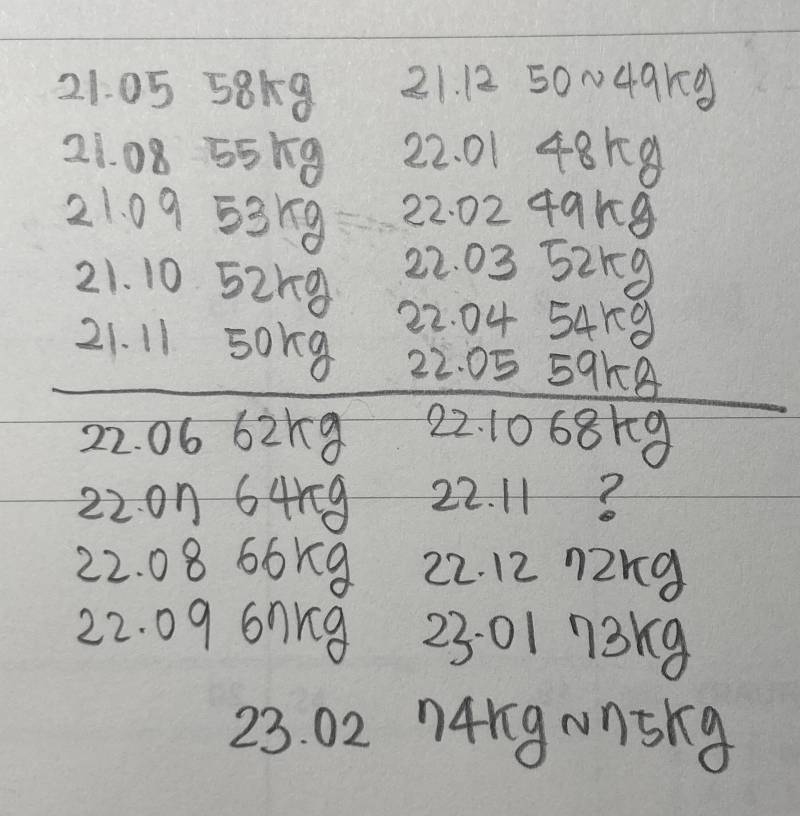 21.05 58kg
21.08 55kg
21.09 53kg
21.10 52kg
21.11 50kg
21.12 50~49kg
22.01 48kg
22.02 49kg
22.03 52kg
22.04 54kg
22.05 59kg
22.06 62kg
22.07 64kg
22.08 66kg
22.09 67kg
22.10 68kg
22.11 ?
22.12 72kg
23.01 73kg
23.02 74kg~75kg